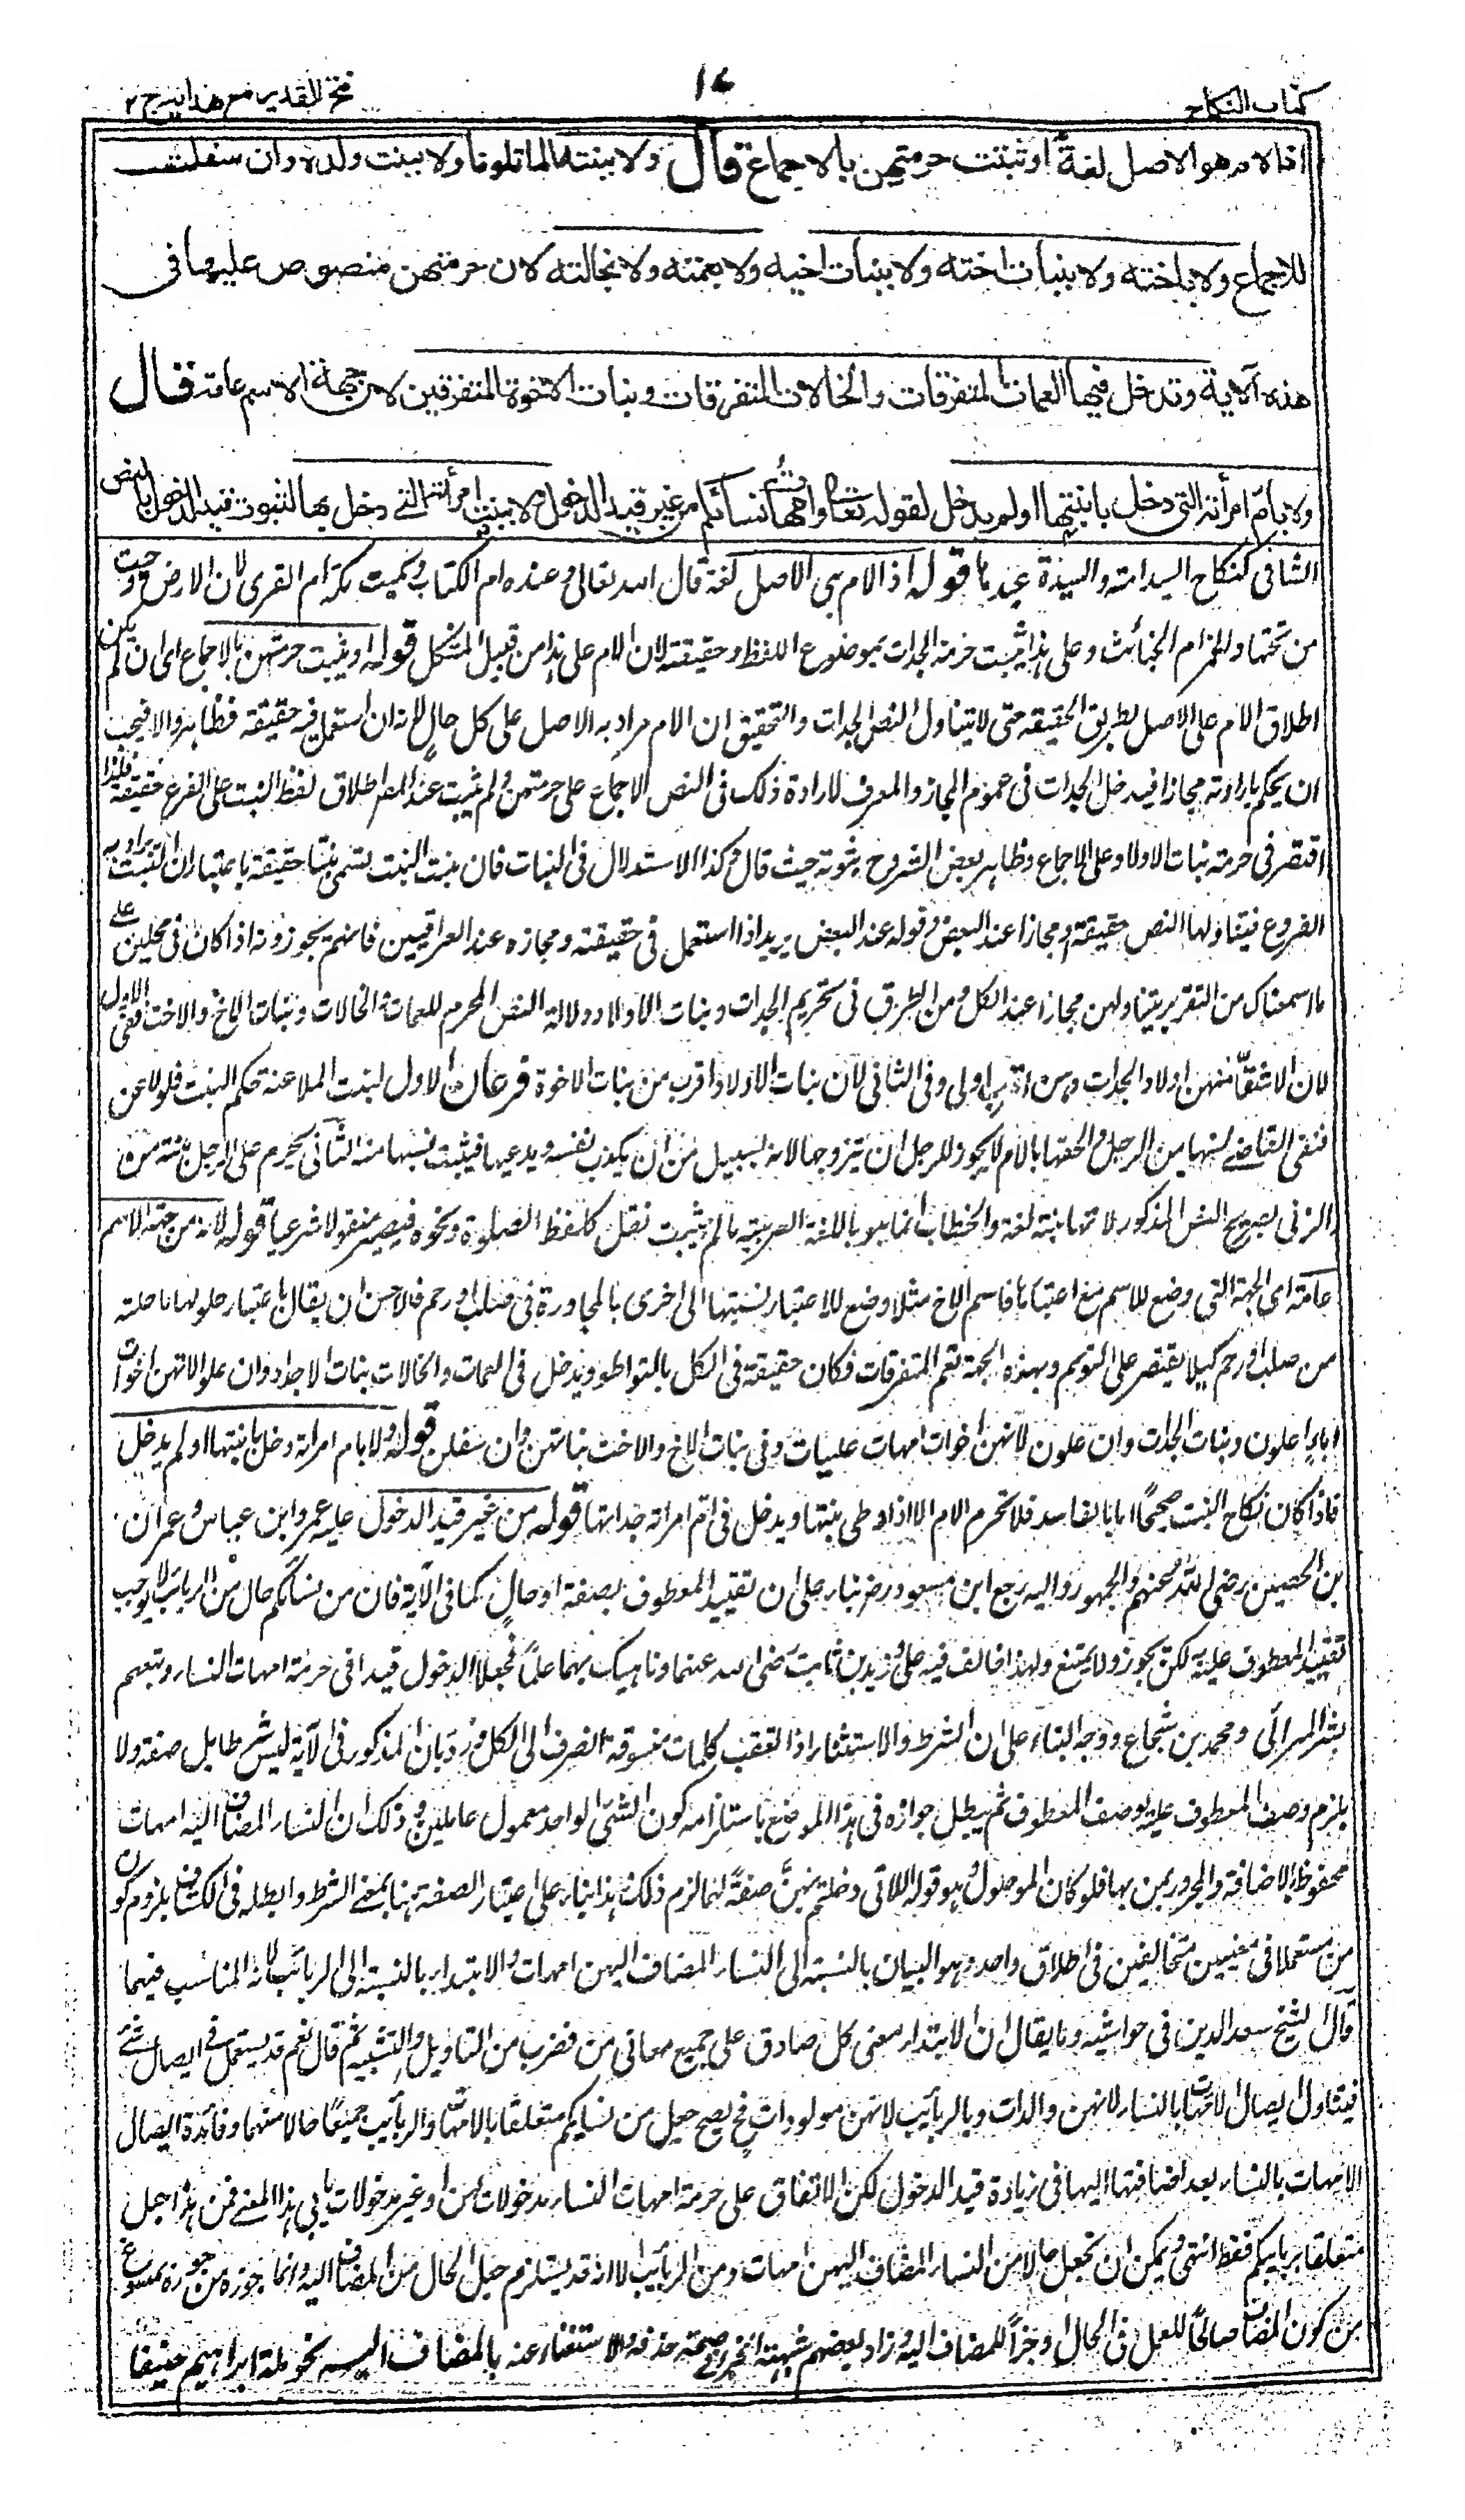 كتاب النكاح
١٧
فتح القدير مع هدايه ج ٢
اذ الام هو الاصل لغة او ثبتت حرمتهن بالاجماع قال ولا ببنته لما تلونا ولا ببنت ولده وان سفلت
للاجماع ولا باخته ولا ببنات اخته ولا ببنات اخيه ولا بعمته ولا بخالته لان حرمتهن منصوص عليها فى
هذه الاية وتدخل فيها العمات المتفرقات والخالات المتفرقات وبنات الاخوة المتفرقين لان جهة الاسم عامة قال
ولا بام امرأته التى دخل بابنتها او لم يدخل لقوله تعالى وامهات نسائكم من غير قيد الدخول ولا ببنت امرأته التى دخل بها لثبوت قيد الدخول بالنص
الثانى كنكاح السيد امته والسيدة عبدها قوله اذ الام هى الاصل لغة قال الله تعالى وعنده ام الكتاب وسميت مكة ام القرى لان الارض دحيت
من تحتها والخمر ام الخبائث وعلى هذا ثبتت حرمة الجدات بموضوع اللفظ وحقيقته لان الام على هذا من قبيل المشكل قوله او ثبتت حرمتهن بالاجماع اى ان لم يكن
اطلاق الام على الاصل بطريق الحقيقة حتى لا يتناول النص الجدات والتحقيق ان الام مراد به الاصل على كل حال لانه ان استعمل فيه حقيقة فظاهر والا فيجب
ان يحكم بارادته مجازا فيدخل الجدات فى عموم المجاز والمعرف لارادة ذلك فى النص الاجماع على حرمتهن ولم يثبت عند المص اطلاق لفظ البنت على الفرع حقيقة فلذا
اقتصر فى حرمة بنات الاولاد على الاجماع وظاهر بعض الشروح ثبوته حيث قال وكذا الاستدلال فى البنات فان بنت البنت تسمى بنتا حقيقة باعتبار ان البنت يراد به
الفروع فيتناولها النص حقيقة ومجازا عند البعض وقوله عند البعض يريد اذا استعمل فى حقيقته ومجازه عند العراقيين فانهم يجوزونه اذا كان فى محلين على
ما اسمعناك من التقرير يتناولهن مجازا عند الكل ومن الطرق فى تحريم الجدات وبنات الاولاد دلالة النص المحرم للعمات والخالات وبنات الاخ والاخت ففى الاول
لان الاشقاء منهن اولاد الجدات فتحريم الجدات وهن اقرب اولى وفى الثانى لان بنات الاولاد اقرب من بنات الاخوة فرعان الاول لبنت الملاعنة حكم البنت فلو لاعن
فنفى القاضى نسبها من الرجل والحقها بالام لا يجوز للرجل ان يتزوجها لانه بسبيل من ان يكذب نفسه ويدعيها فيثبت نسبها منه الثانى يحرم على الرجل بنته من
الزنى بصريح النص المذكور لانها بنته لغة والخطاب انما هو باللغة العربية ما لم يثبت نقل كلفظ الصلوة ونحوه فيصير منقولا شرعيا قوله لانه من جهة الاسم
عامة اى الجهة التى وضع للاسم مع اعتبارها فاسم الاخ مثلا وضع للاعتبار نسبتها الى اخرى بالمجاورة فى صلب او رحم فالاحسن ان يقال باعتبار حلولها ما حلته
من صلب او رحم كيلا يقتصر على التوءم وبهذه الجهة تعم المتفرقات فكان حقيقة فى الكل بالتواطؤ ويدخل فى العمات والخالات بنات الاجداد وان علوا لانهن اخوات
اباء اعلون وبنات الجدات وان علون لانهن اخوات امهات عليات وفى بنات الاخ والاخت بناتهن وان سفلن قوله ولا بام امرأته دخل بابنتها او لم يدخل
فاذا كان نكاح البنت صحيحًا اما بالفاسد فلا تحرم الام الا اذا وطى بنتها ويدخل فى ام امراته جداتها قوله من غير قيد الدخول عليه عمر وابن عباس وعمران
بن الحصين رضى الله عنهم والجمهور واليه رجع ابن مسعود رض بناء على ان تقييد المعطوف بصفة او حال كما فى الآية فان من نسائكم حال من الربائب لا يوجب
تقييد المعطوف عليه به لكن يجوز ولا يمتنع ولهذا خالف فيه على وزيد بن ثابت رضى الله عنهما وناهيك بهما علمًا فجعلا الدخول قيدا فى حرمة امهات النساء وتبعهم
بشر المريسى ومحمد بن شجاع ووجه البناء على ان الشرط والاستثناء اذا تعقب كلمات منسوقة انصرف الى الكل ورد بان المذكور فى الآية ليس شرطا بل صفة ولا
يلزم وصف المعطوف عليه بوصف المعطوف ثم يبطل جوازه فى هذا الموضع باستلزامه كون الشئ الواحد معمول عاملين وذلك ان النساء المضاف اليه امهات
مخفوظ بالاضافة والمجرور بمن بها فلو كان الموصول وهو قوله اللاتى دخلتم بهن صفة لهما لزم ذلك هذا بناء على اعتبار الصفة هنا بمعنى الشرط وابطله فى الكشاف بلزوم كون
من مستعملا فى معنيين متخالفين فى اطلاق واحد وهو البيان بالنسبة الى النساء المضاف اليهن امهات والابتداء بالنسبة الى الربائب لانه المناسب فيهما
قال الشيخ سعد الدين فى حواشيه وما يقال ان الابتداء معنى كلى صادق على جميع معانى من فضرب من التاويل والتشبيه ثم قال نعم قد يستعمل فى ايصال شئ
فيتناول ايصال الامهات بالنساء لانهن والدات وبالربائب لانهن مولودات فح يصح جعل من نسائكم متعلقا بالامهات والربائب جميعًا حالا منهما وفائدة ايصال
الامهات بالنساء بعد اضافتها اليها فى زيادة قيد الدخول لكن الاتفاق على حرمة امهات النساء مدخولات كن او غير مدخولات يابى هذا المعنى فمن هذا جعل
متعلقا بربايبكم فقط انتهى ويمكن ان تجعل حالا من النساء المضاف اليهن امهات ومن الربائب الا انه قد يستلزم جعل الحال من المضاف اليه وانما جوزه من جوزه بمسوغ
من كون المضاف صالحًا للعمل فى الحال او جزأ للمضاف اليه وزاد بعضهم شبهة الجزء فى صحة حذفه والاستغناء عنه بالمضاف اليه نحو ملة ابراهيم حنيفا